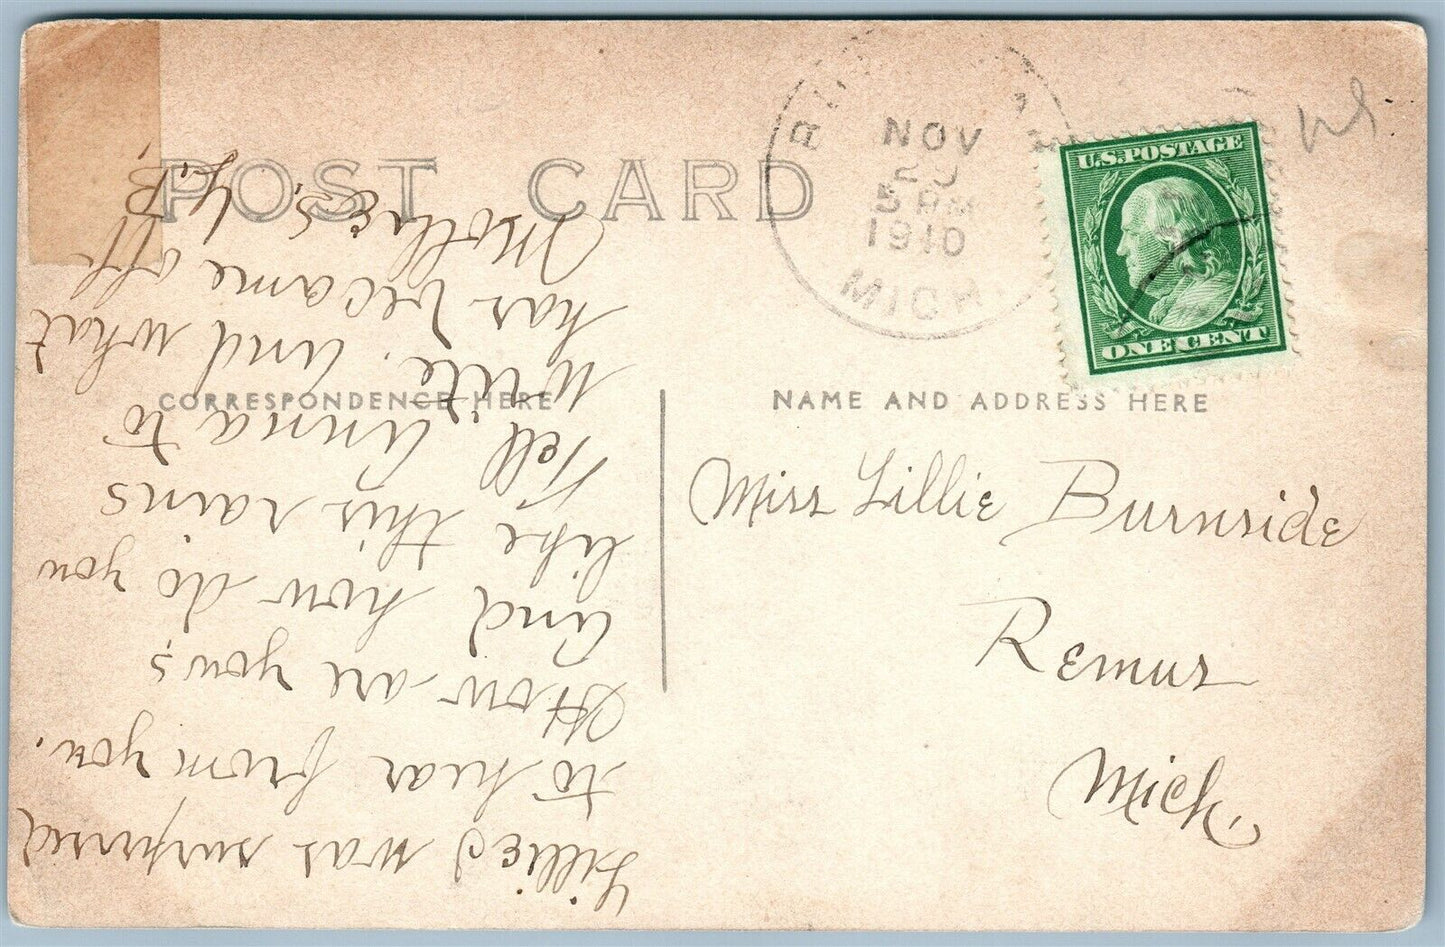 POST CARD
NOV
5 PM
1910
MICH.
U.S. POSTAGE
ONE CENT
CORRESPONDENCE HERE
NAME AND ADDRESS HERE
Miss Lillie Burnside
Remus
Mich,
Lillie I was surprised
to hear from you.
How are you,
and how do you
like this rains
Tell Anna to
write. and what
has became off